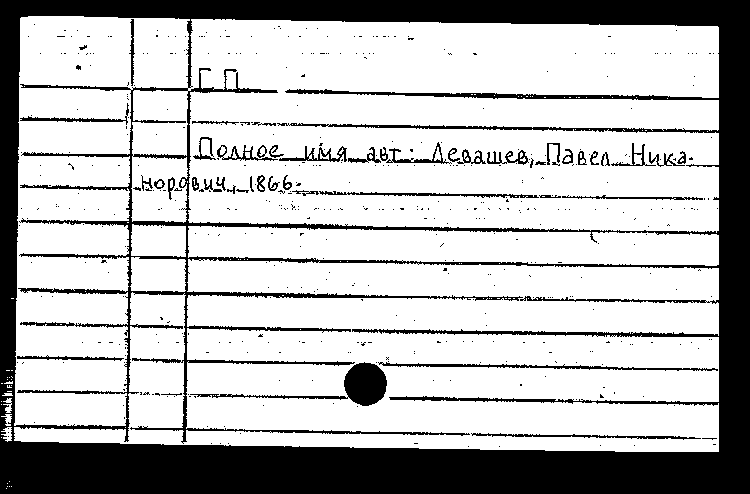 Г П
Полное имя авт: Левашев, Павел Ника-
норович, 1866-